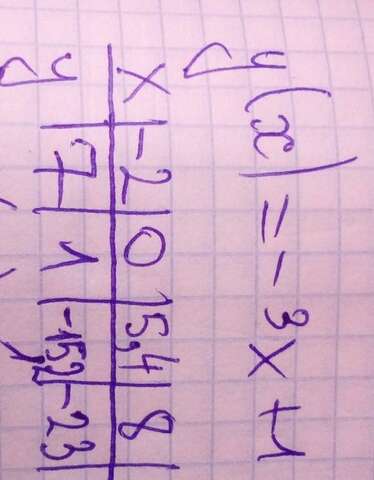 y(x) = -3x+1
x | -2 | 0 | 5,4 | 8
y | 7 | 1 | -15,2 | -23